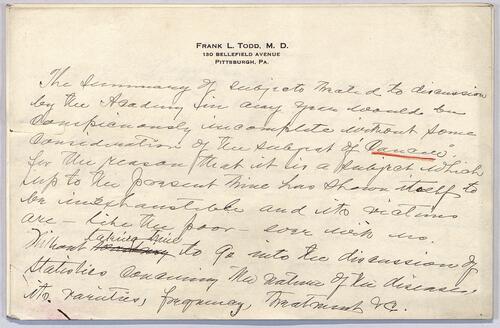 FRANK L. TODD, M. D.
130 BELLEFIELD AVENUE
PITTSBURGH, PA.
The summary of subjects treated to discussion
by the Academy for any year would be
conspicuously incomplete without some
consideration of the subject of "Cancer"
for the reason that it is a subject which
up to the present time has shown itself to
be inexhaustible and its victims
are – like the poor – ever with us.
Without taking time to go into the discussion of
statistics concerning the nature of the disease,
its varieties, frequency, treatment &c.